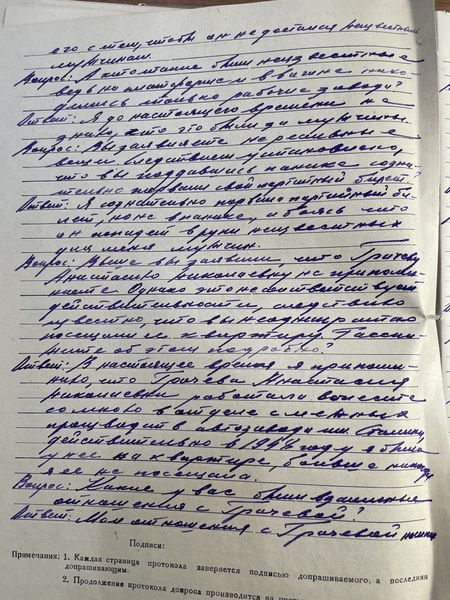 его с тем, чтобы он не достался неизвестным
мужчинам.
Вопрос: А кто такие были неизвестные
ведь на платформах в вагоне нахо-
дились только рабочие завода?
Ответ: Я до настоящего времени не
знаю, кто это были за мужчины.
Вопрос: Вы заявляете нереальные
вещи. Следствием установлено,
что вы поддавшись панике созна-
тельно порвали свой партийный билет?
Ответ: Я сознательно порвала партийный би-
лет, но не в панике, а боясь что
он попадет в руки неизвестных
для меня мужчин.
Вопрос: Выше вы заявили, что Грачеву
Анастасию Николаевну не припоми-
наете. Однако это не соответствует
действительности, следствию
известно, что вы неоднократно
посещали её квартиру. Расска-
жите об этом подробно?
Ответ: В настоящее время я припоми-
наю, что Грачева Анастасия
Николаевна работала вместе
со мною в отделе смежных
производств автозавода им. Сталина,
действительно в 194 году я была
у нее на квартире, больше никогда
я ее не посещала.
Вопрос: Какие у вас были взаимные
отношения с Грачевой?
Ответ: Мои отношения с Грачевой
Подписи:
Примечания: 1. Каждая страница протокола заверяется подписью допрашиваемого, а последняя
допрашивающим.
2. Продолжение протокола допроса производится на